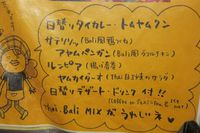 日替りタイカレー・トムヤムクン
サテリリッ(Bali風鶏つくね)
アヤムパンガン(Bali風グリルチキン)
ルンピア(揚げ春巻)
ヤムカイダーオ(Thai目玉焼のサラダ)
日替りデザート・ドリンク付!!
(Coffee or
Thai・Bali MIXがうれしいネ♥